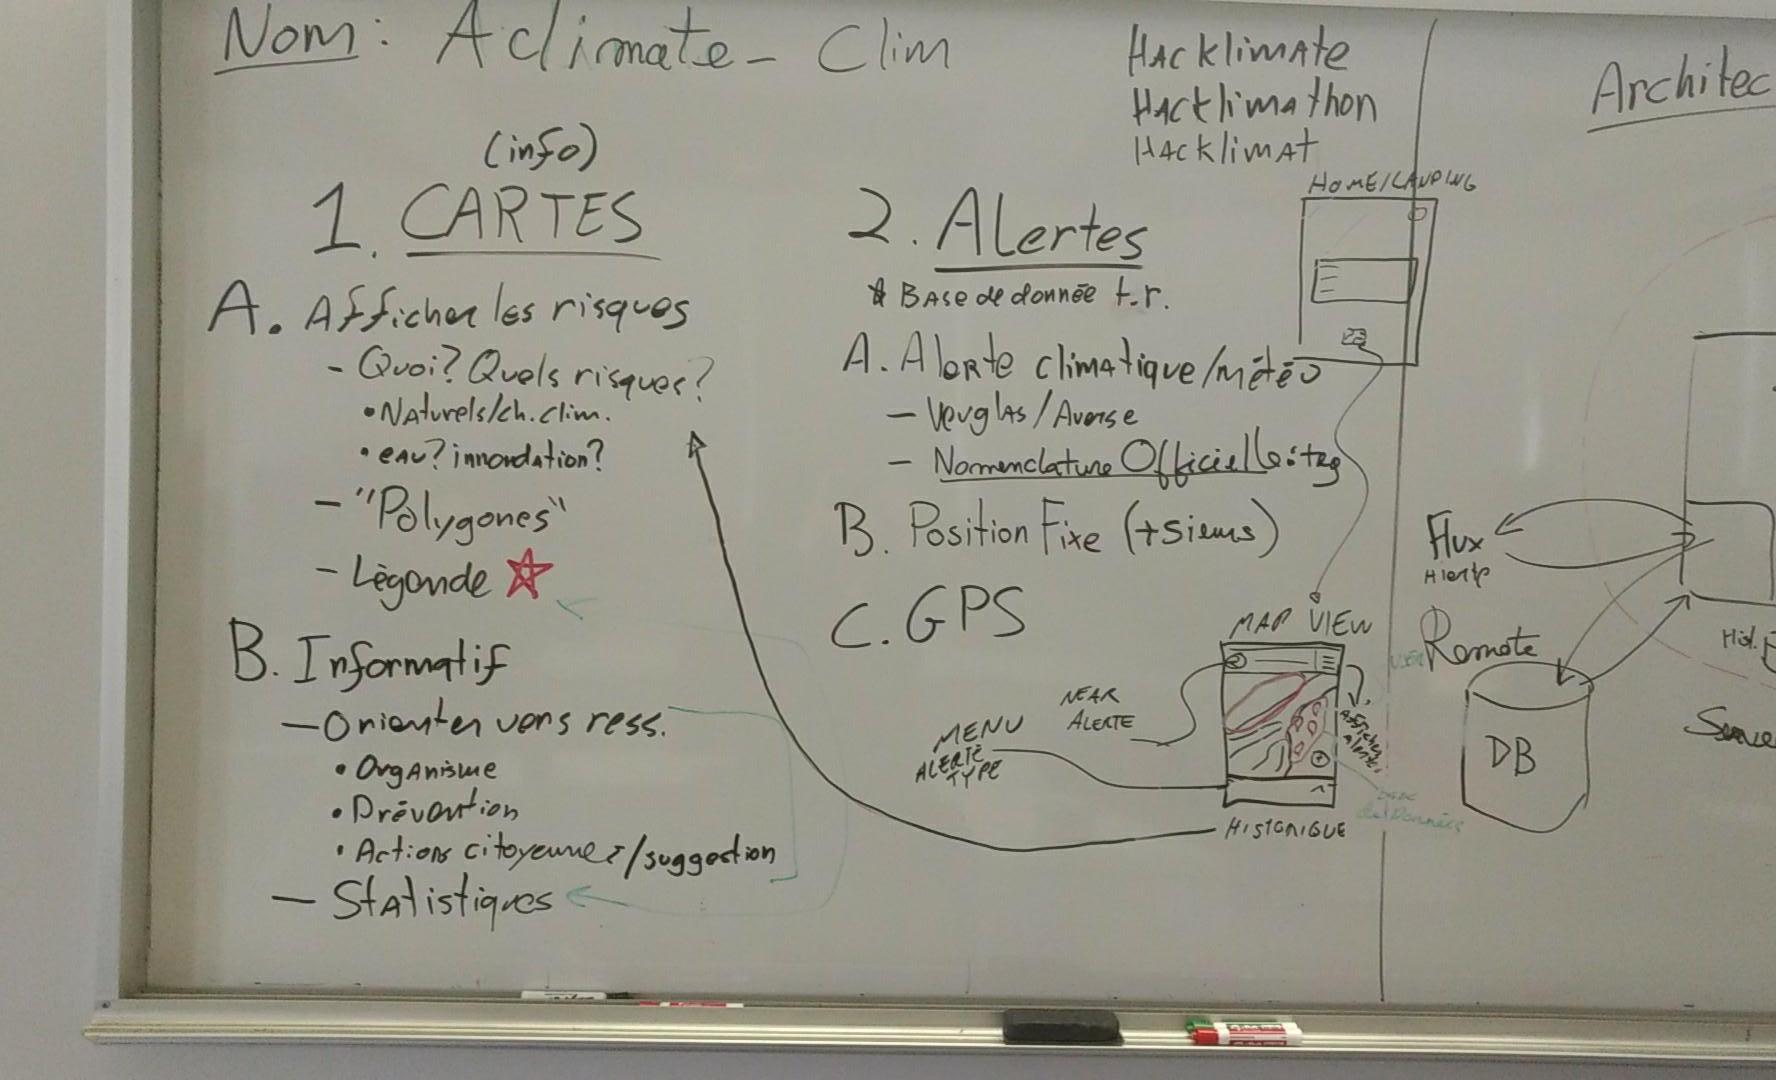 Nom: Aclimate - Clim
Hacklimate
Hacklimathon
Hacklimat
(info)
1. CARTES
A. Afficher les risques
- Quoi? Quels risques?
• Naturels/ch. clim.
• eau? innondation?
- "Polygones"
- Légende
B. Informatif
- Orienter vers ress.
• Organisme
• Prévention
• Actions citoyennes/suggestion
- Statistiques
2. Alertes
* Base de donnée t.r.
A. Alerte climatique/météo
- Verglas/Averse
- Nomenclature Officielle: tag
B. Position Fixe (+sieurs)
C. GPS
HOME/LANDING
MAP VIEW
NEAR
ALERTE
MENU
ALERTE
TYPE
Afficher
alertes
HISTORIQUE
Architec
Flux
Alerte
Remote
DB
Hist.
de Données